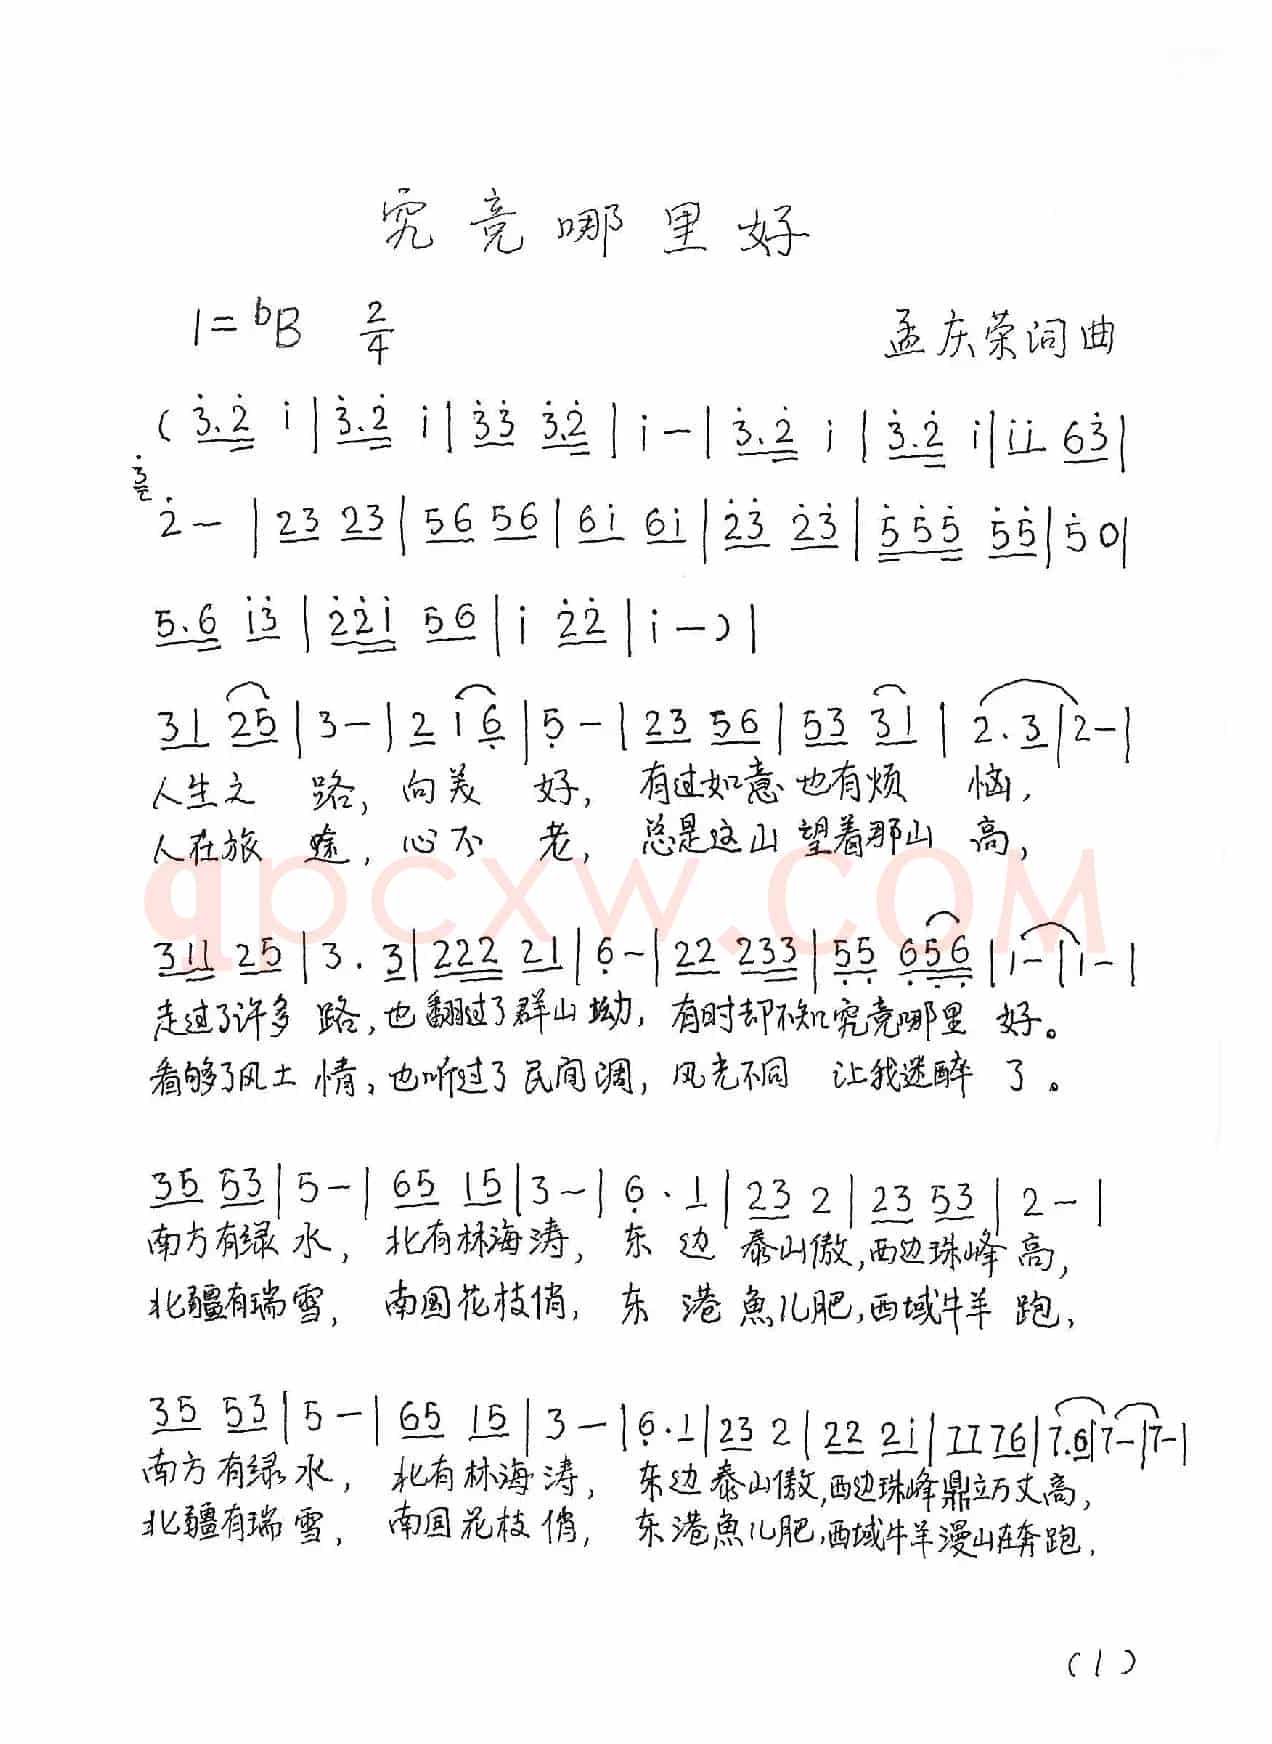 究竟哪里好
1=bB 2/4 孟庆荣词曲
(3.2 i|3.2 i|33 3.2|i-|3.2 i|3.2 i|ii 63|
3 2-|23 23|56 56|6i 6i|23 23|555 55|50|
5.6 i3|22i 56|i 22|i-)|
31 25|3-|2 1 6|5-|23 56|53 31|2.3|2-|
人生之路,向美好,有过如意也有烦恼,
人在旅途,心不老,总是这山望着那山高,
qpcxw.com
311 25|3.3|222 21|6-|22 233|55 656|1-|1-|
走过了许多路,也翻过了群山坳,有时却不知究竟哪里好。
看够了风土情,也听过了民间调,风光不同 让我迷醉了。
35 53|5-|65 15|3-|6.1|23 2|23 53|2-|
南方有绿水,北有林海涛,东边泰山傲,西边珠峰高,
北疆有瑞雪,南国花枝俏,东港魚儿肥,西域牛羊跑,
35 53|5-|65 15|3-|6.1|23 2|22 2i|77 76|7.6|7-|7-|
南方有绿水,北有林海涛,东边泰山傲,西边珠峰鼎立万丈高,
北疆有瑞雪,南国花枝俏,东港魚儿肥,西域牛羊漫山在奔跑,
(1)